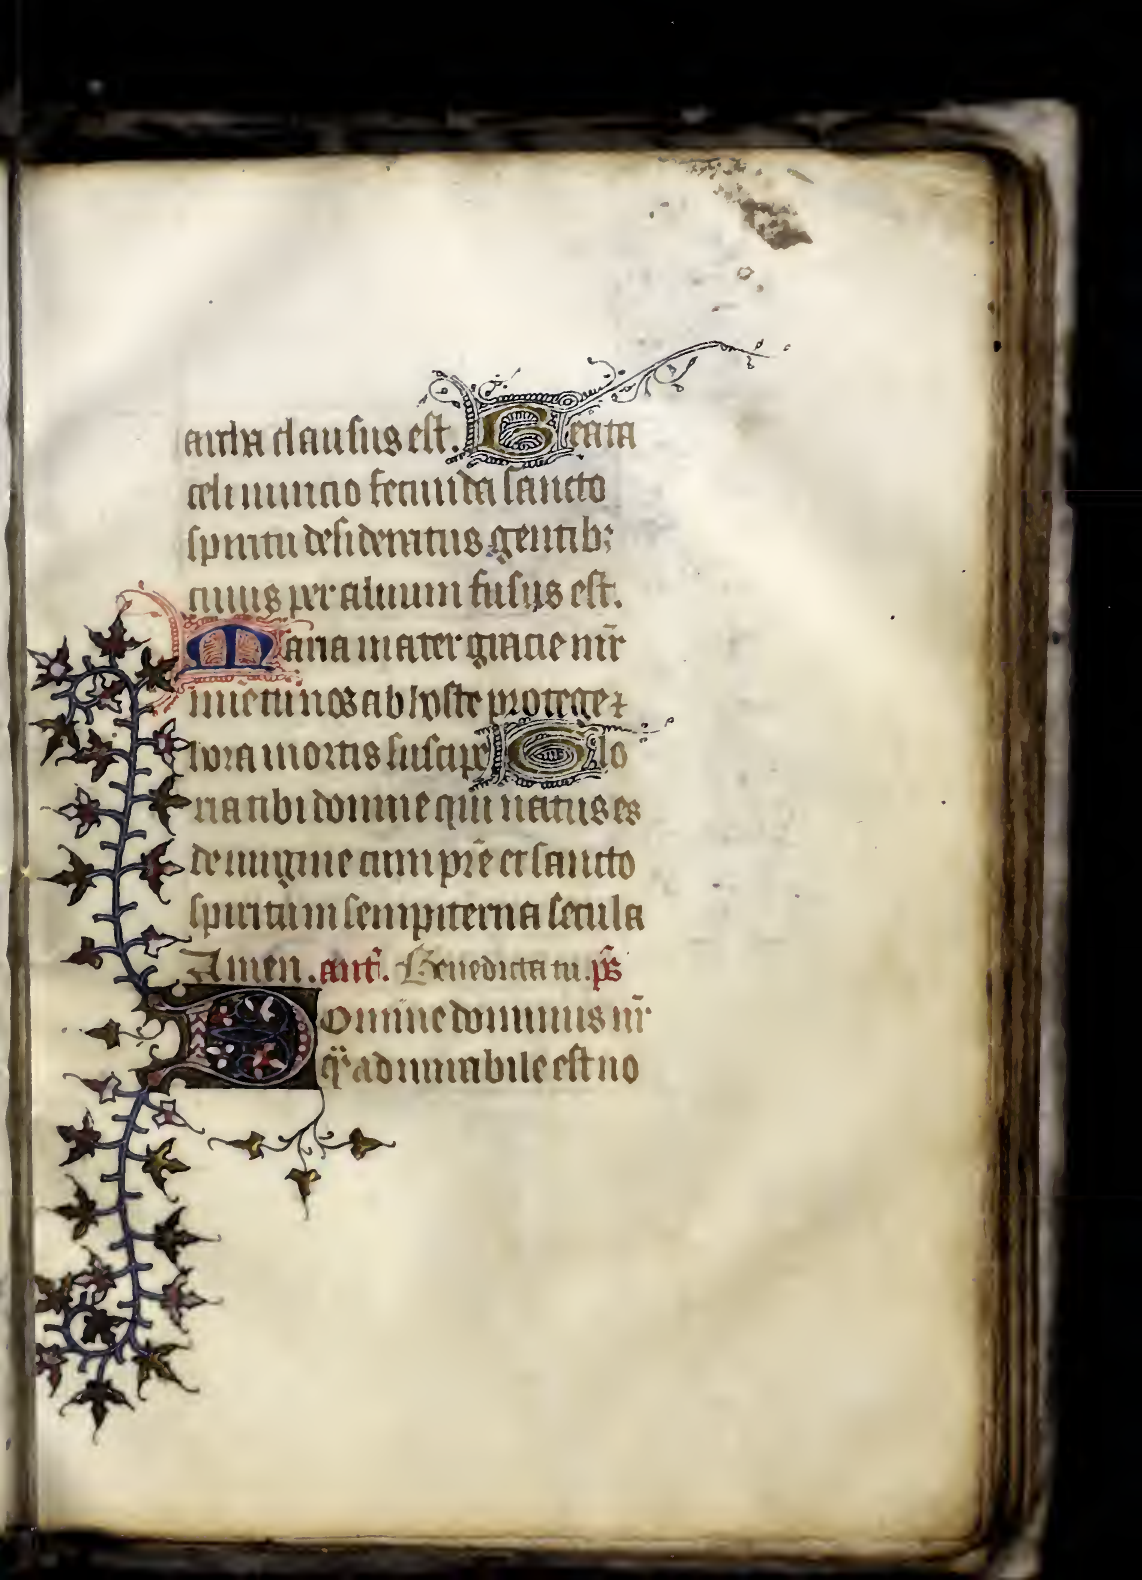 archa clausus est. Beata
celi nuncio fecunda sancto
spiritu desideratus gentib;
cuius per aluum fusus est.
Maria mater gracie mr̄
mie tu nos ab hoste protege ⁊
hora mortis suscipe Glo
ria tibi domine qui natus es
de uirgine cum pr̄e et sancto
spiritu in sempiterna secula
Amen. ant̄. Benedicta tu. ps̄
Domine dominus nr̄
qm̄ admirabile est no